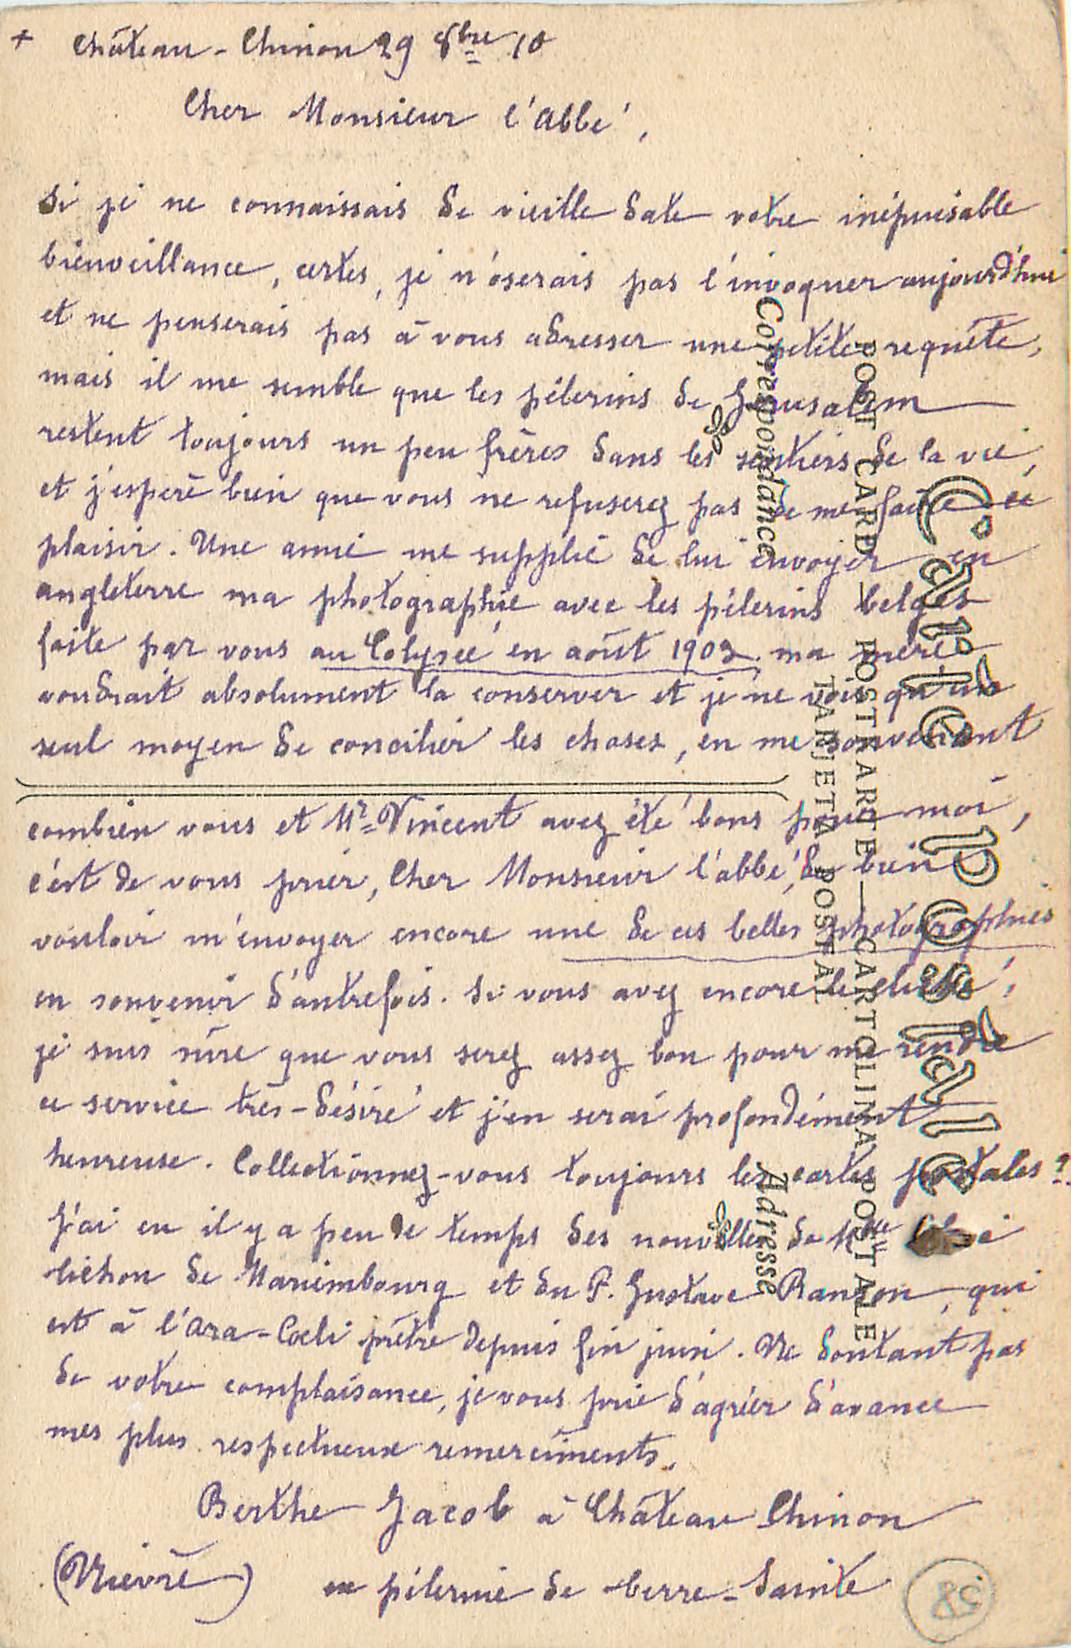 + Château-Chinon 29 8bre 10
Cher Monsieur l'Abbé,
Si je ne connaissais de vieille date votre inépuisable
bienveillance, certes, je n'oserais pas l'invoquer aujourd'hui
et ne penserais pas à vous adresser une petite requête,
mais il me semble que les pélerins de Jérusalem
restent toujours un peu frères dans les sentiers de la vie,
et j'espère bien que vous ne refuserez pas de me faire ce
plaisir. Une amie me supplie de lui envoyer en
angleterre ma photographie avec les pélerins belges
faite par vous au Colysée en août 1903. ma mère
voudrait absolument la conserver et je ne vois qu'un
seul moyen de concilier les choses, en me souvenant
combien vous et Mr Vincent avez été bons pour moi,
c'est de vous prier, Cher Monsieur l'abbé, de bien
vouloir m'envoyer encore une de ces belles photographies
en souvenir d'autrefois. Si vous avez encore le cliché,
je suis sûre que vous serez assez bon pour me rendre
ce service très-désiré et j'en serai profondément
heureuse. Collectionnez-vous toujours les cartes postales?
J'ai eu il y a peu de temps des nouvelles de Melle
de Mariembourg et du P. Gustave Ranson, qui
est à l'Ara-Coeli prêtre depuis fin juin. Ne doutant pas
de votre complaisance, je vous prie d'agréer d'avance
mes plus respectueux remerciments.
Berthe Jacob à Château Chinon
(Nièvre) pélerine de Terre-Sainte
58
Carte Postale
POST CARD — POSTKARTE — CARTOLINA POSTALE
TARJETA POSTAL
Correspondance
Adresse